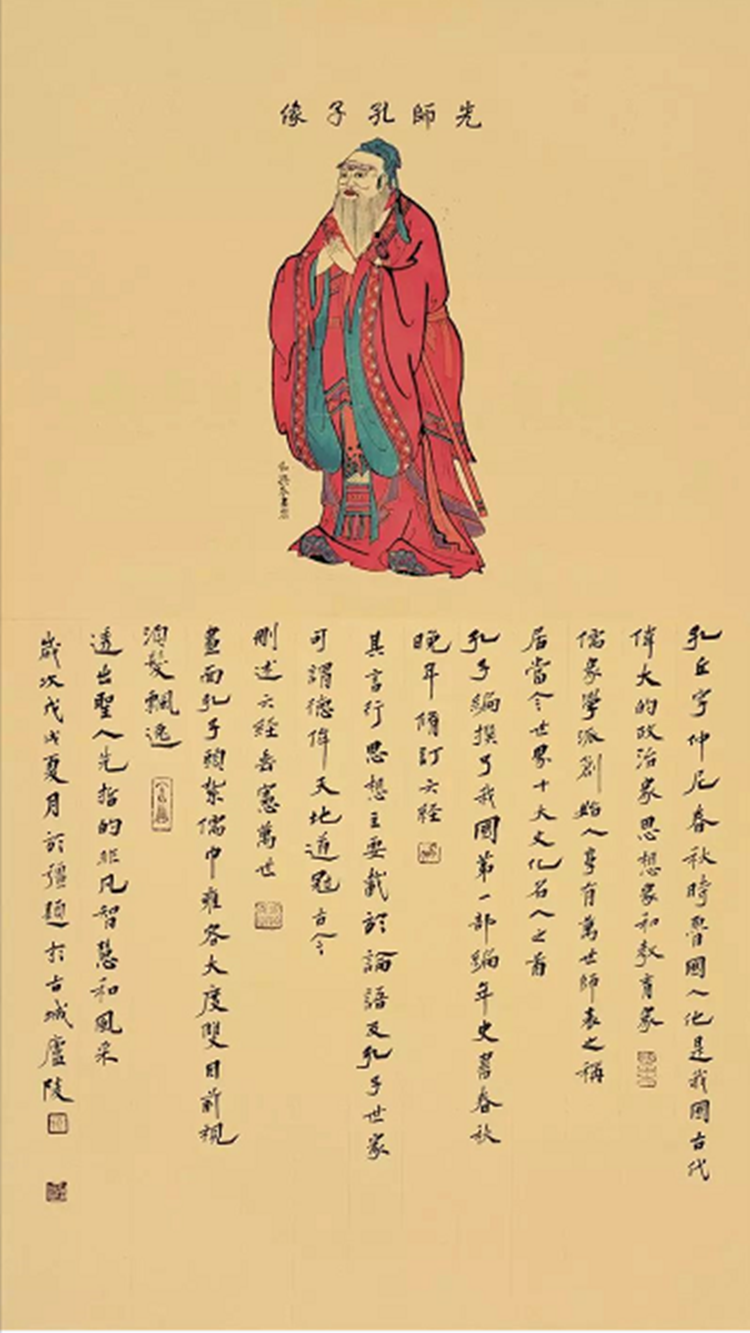 先師孔子像
孔丘字仲尼春秋時魯國人他是我國古代
偉大的政治家思想家和教育家
儒家學派創始人享有萬世師表之稱
居當今世界十大文化名人之首
孔子編撰了我國第一部編年史書春秋
晚年脩訂六經
其言行思想主要載於論語及孔子世家
可謂德侔天地道冠古今
刪述六經垂憲萬世
畫面孔子頭紮儒巾雍容大度雙目前視
鬚髮飄逸
透出聖人先哲的非凡智慧和風采
歲次戊戌夏月於彊題於古城廬陵